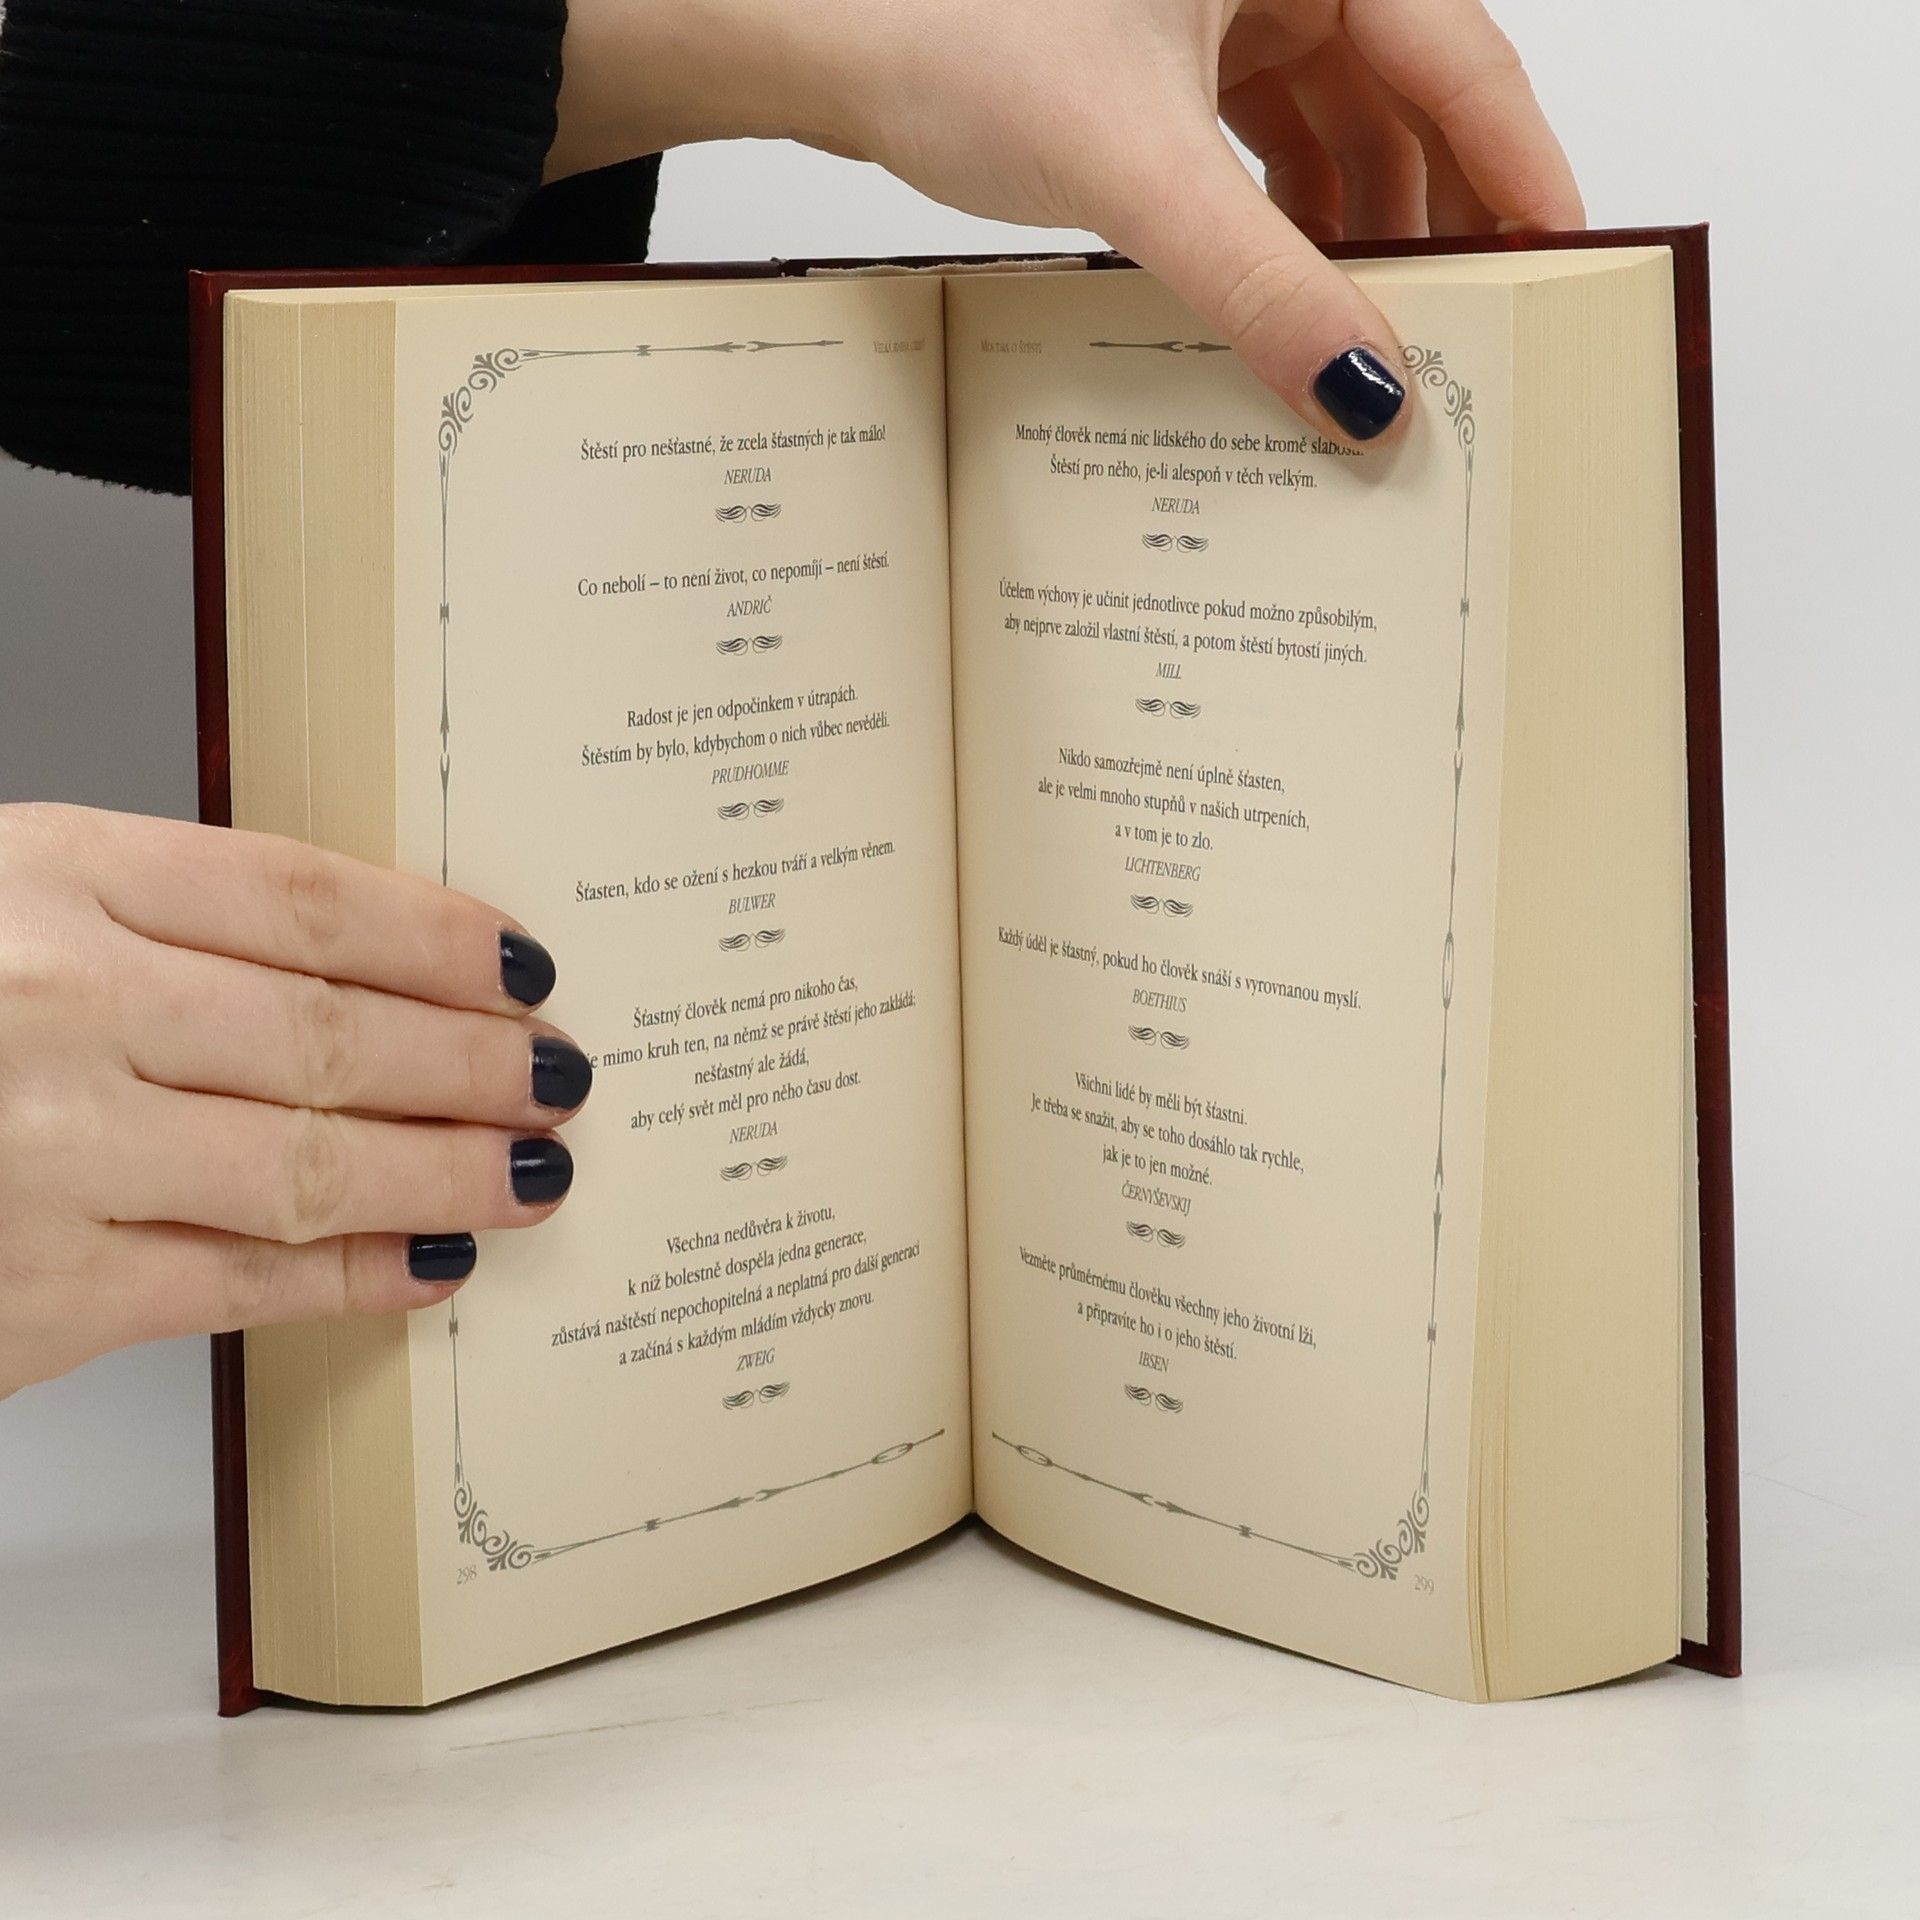 Štěstí pro nešťastné, že zcela šťastných je tak málo!
NERUDA
Co nebolí – to není život, co nepomíjí – není štěstí.
ANDRIČ
Radost je jen odpočinkem v útrapách.
Štěstím by bylo, kdybychom o nich vůbec nevěděli.
PRUDHOMME
Šťasten, kdo se ožení s hezkou tváří a velkým věnem.
BULWER
Šťastný člověk nemá pro nikoho čas,
je mimo kruh ten, na němž se právě štěstí jeho zakládá;
nešťastný ale žádá,
aby celý svět měl pro něho času dost.
NERUDA
Všechna nedůvěra k životu,
k níž bolestně dospěla jedna generace,
zůstává naštěstí nepochopitelná a neplatná pro další generaci
a začíná s každým mládím vždycky znovu.
ZWEIG
298
MOUDRA O ŠTĚSTÍ
Mnohý člověk nemá nic lidského do sebe kromě slabostí.
Štěstí pro něho, je-li alespoň v těch velkým.
NERUDA
Účelem výchovy je učinit jednotlivce pokud možno způsobilým,
aby nejprve založil vlastní štěstí, a potom štěstí bytostí jiných.
MILL
Nikdo samozřejmě není úplně šťasten,
ale je velmi mnoho stupňů v našich utrpeních,
a v tom je to zlo.
LICHTENBERG
Každý úděl je šťastný, pokud ho člověk snáší s vyrovnanou myslí.
BOETHIUS
Všichni lidé by měli být šťastni.
Je třeba se snažit, aby se toho dosáhlo tak rychle,
jak je to jen možné.
ČERNYŠEVSKIJ
Vezměte průměrnému člověku všechny jeho životní lži,
a připravíte ho i o jeho štěstí.
IBSEN
299